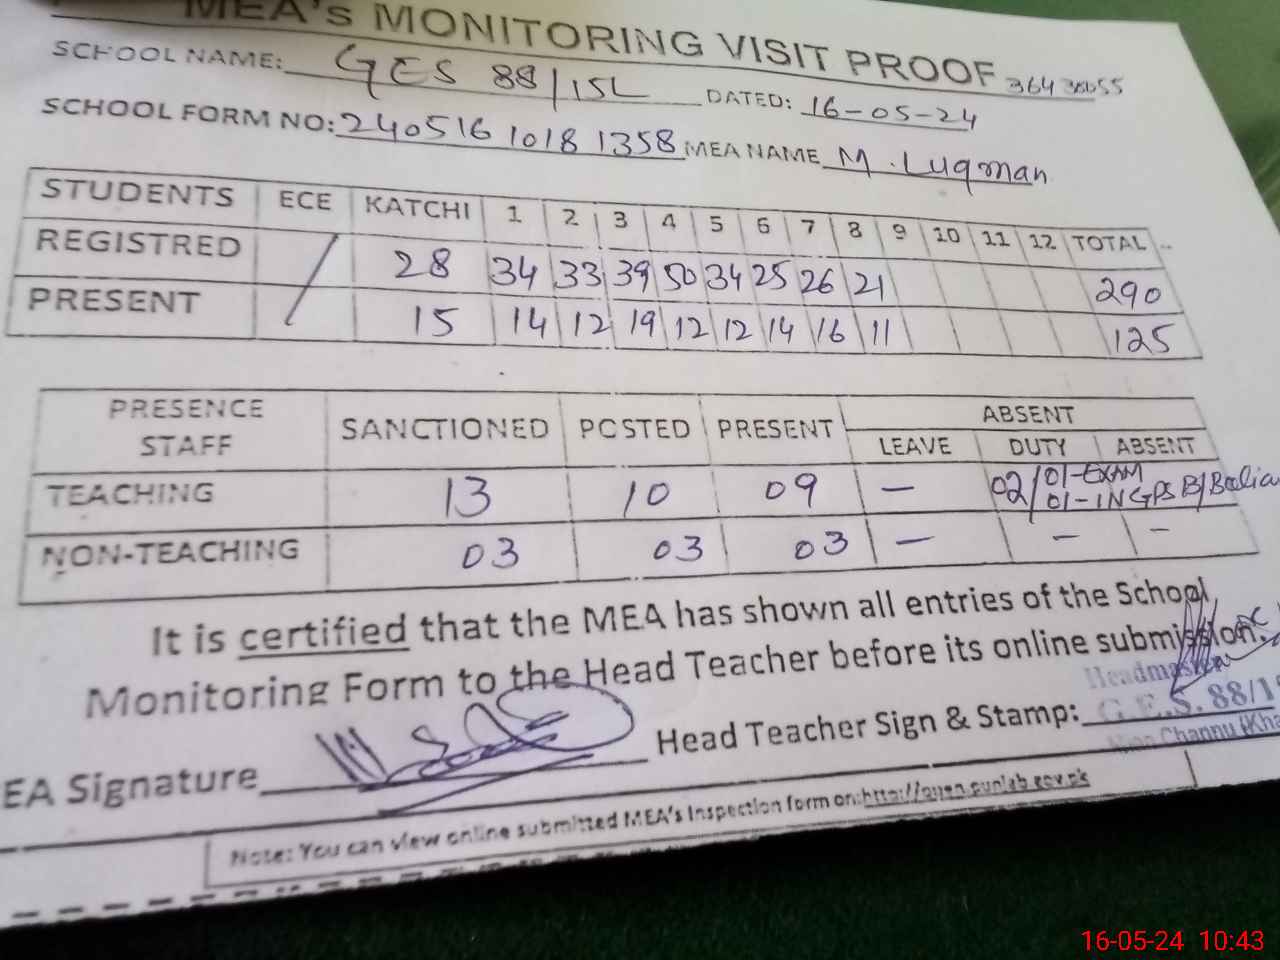 MEA's MONITORING VISIT PROOF
SCHOOL NAME: GES 88/15L DATED: 16-05-24
SCHOOL FORM NO: 240516 10181358 MEA NAME M. Luqman
STUDENTS ECE KATCHI 1 2 3 4 5 6 7 8 9 10 11 12 TOTAL
REGISTRED / 28 34 33 39 50 34 25 26 21 290
PRESENT 15 14 12 19 12 12 14 16 11 125
PRESENCE STAFF SANCTIONED POSTED PRESENT ABSENT
LEAVE DUTY ABSENT
TEACHING 13 10 09 — 02/01-EXAM
01-IN GPS
NON-TEACHING 03 03 03 — — —
It is certified that the MEA has shown all entries of the School
Monitoring Form to the Head Teacher before its online submission.
EA Signature Head Teacher Sign & Stamp:
Headmaster
G.E.S. 88/15
Mian Channu (Kha
Note: You can view online submitted MEA's Inspection form on:http://open.punjab.gov.pk
16-05-24 10:43